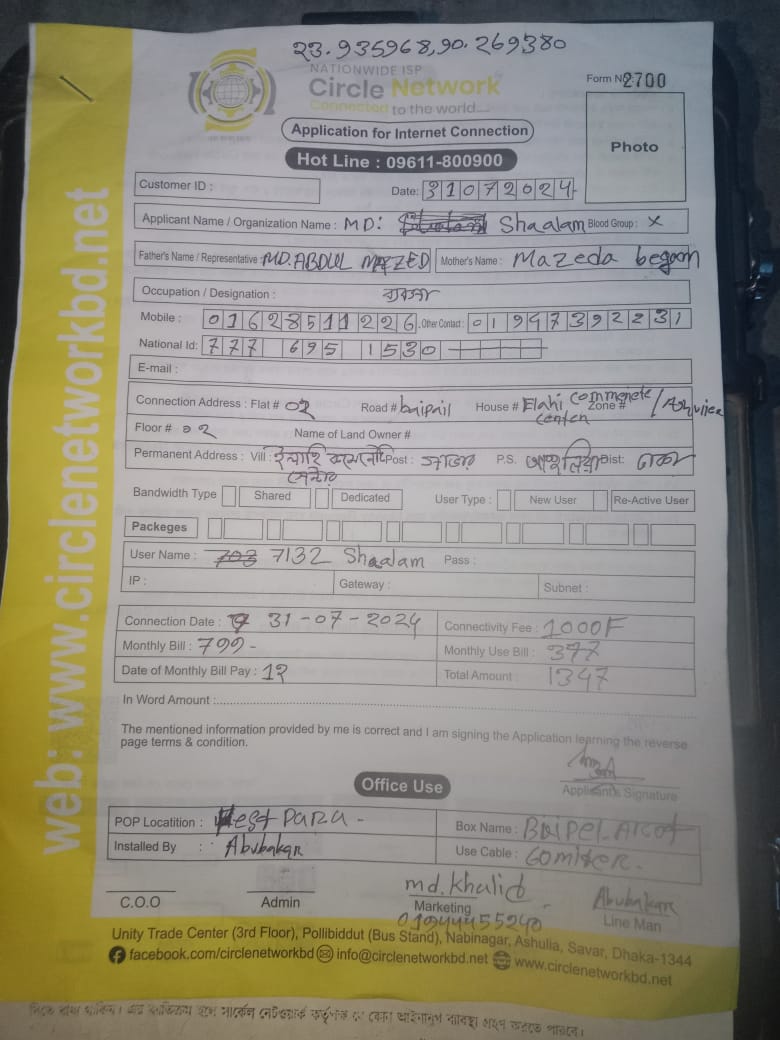 23.935968,90.269380
NATIONWIDE ISP
Circle Network
Connected to the world....
Form No: 2700
Application for Internet Connection
Hot Line : 09611-800900
Photo
Customer ID :
Date: 31072024
Applicant Name / Organization Name : MD: Shaalam Blood Group : X
Father's Name / Representative MD. ABDUL MAZED Mother's Name : Mazeda begom
Occupation / Designation : ব্যবসা
Mobile : 01628511226 Other Contact : 01947392231
National Id: 777 695 1530
E-mail :
Connection Address : Flat # 02 Road # baipail House # Elahi Commerete Center Zone #
Floor # 02 Name of Land Owner #
Permanent Address : Vill : ইলাহি সেন্টার Post : সাভার P.S. আশুলিয়া Dist: ঢাকা
Bandwidth Type Shared Dedicated User Type : New User Re-Active User
Packeges
User Name : 703 7132 Shaalam Pass :
IP : Gateway : Subnet :
Connection Date : 31-07-2024 Connectivity Fee : 1000F
Monthly Bill : 799- Monthly Use Bill : 347
Date of Monthly Bill Pay : 12 Total Amount : 1347
In Word Amount :
The mentioned information provided by me is correct and I am signing the Application learning the reverse
page terms & condition.
Applicant's Signature
Office Use
POP Locatition : West Para - Box Name :
Installed By : Abubakar Use Cable : 60miter.
md.khalid Abubakar
C.O.O Admin Marketing Line Man
01944455240
Unity Trade Center (3rd Floor), Pollibiddut (Bus Stand), Nabinagar, Ashulia, Savar, Dhaka-1344
facebook.com/circlenetworkbd info@circlenetworkbd.net www.circlenetworkbd.net
web: www.circlenetworkbd.net
দিতে বাধ্য থাকিব। এর ব্যতিক্রম হলে সার্কেল নেটওয়ার্ক কর্তৃপক্ষ যে কোন আইনানুগ ব্যবস্থা গ্রহণ করতে পারবে।